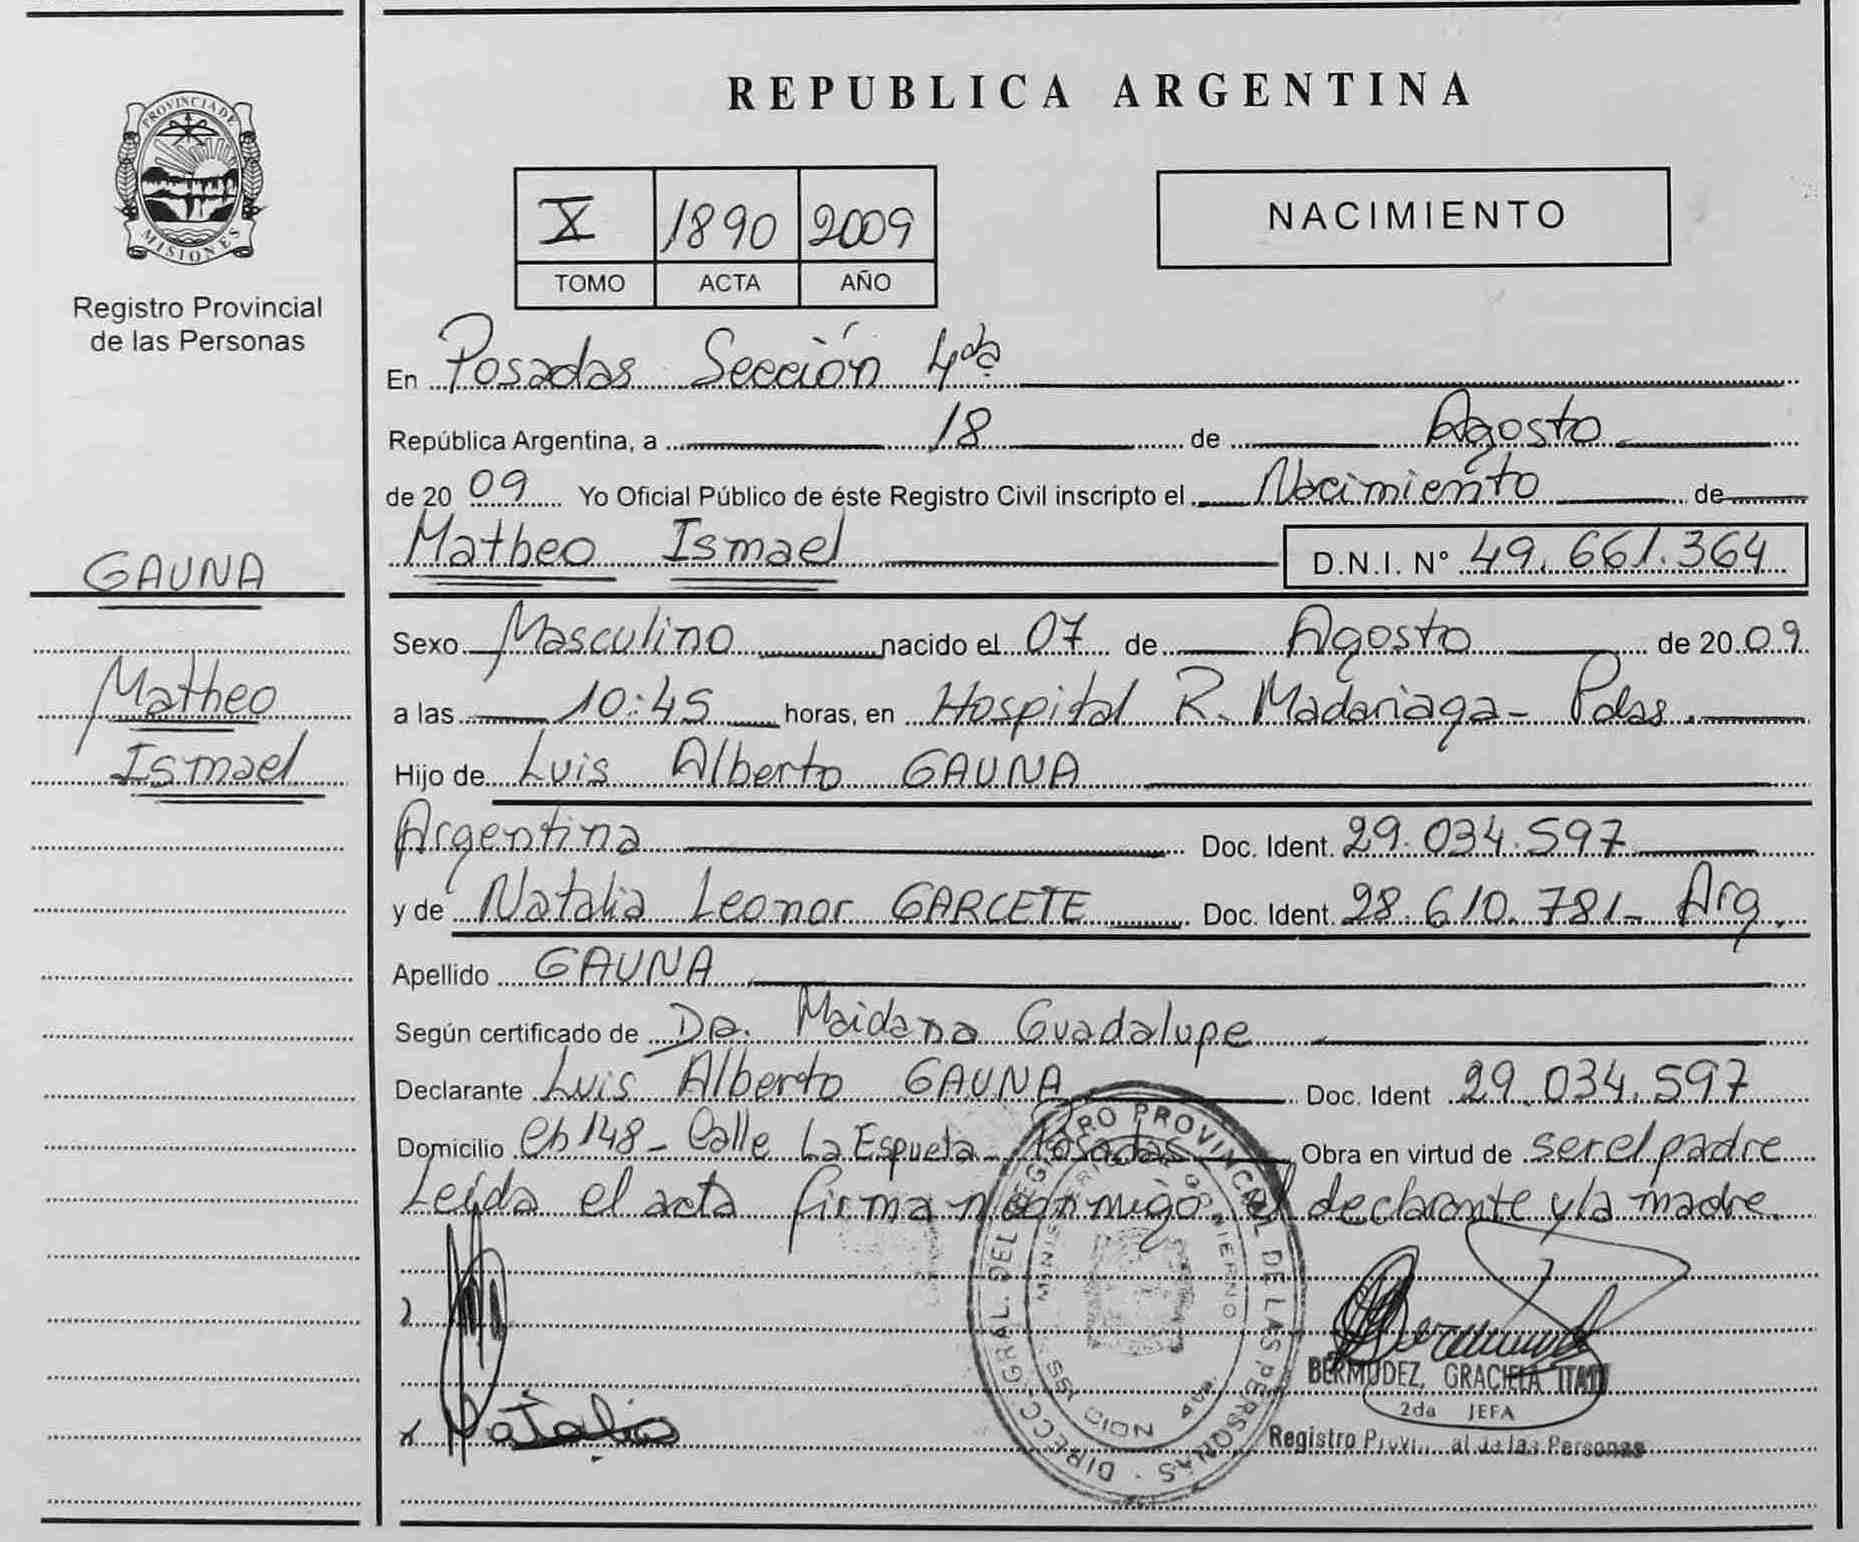 PROVINCIA DE
MISIONES
Registro Provincial
de las Personas
GAUNA
Matheo
Ismael
REPUBLICA ARGENTINA
X 1890 2009
TOMO ACTA AÑO
NACIMIENTO
En Posadas Sección 4da
República Argentina, a 18 de Agosto
de 2009 Yo Oficial Público de éste Registro Civil inscripto el Nacimiento de
Matheo Ismael D.N.I. N° 49.661.364
Sexo Masculino nacido el 07 de Agosto de 2009
a las 10:45 horas, en Hospital R. Madariaga - Pdas.
Hijo de Luis Alberto GAUNA
Argentina Doc. Ident. 29.034.597
y de Natalia Leonor GARCETE Doc. Ident. 28.610.781- Arg.
Apellido GAUNA
Según certificado de Dra. Maidana Guadalupe
Declarante Luis Alberto GAUNA Doc. Ident 29.034.597
Domicilio Ch 148 - Calle La Espueta - Posadas Obra en virtud de ser el padre
Leída el acta firman conmigo, el declarante y la madre.
Natalia
DIRECC. GRAL. DEL REGISTRO PROVINCIAL DE LAS PERSONAS
BERMUDEZ, GRACIELA ITATI
2da JEFA
Registro Provincial de las Personas